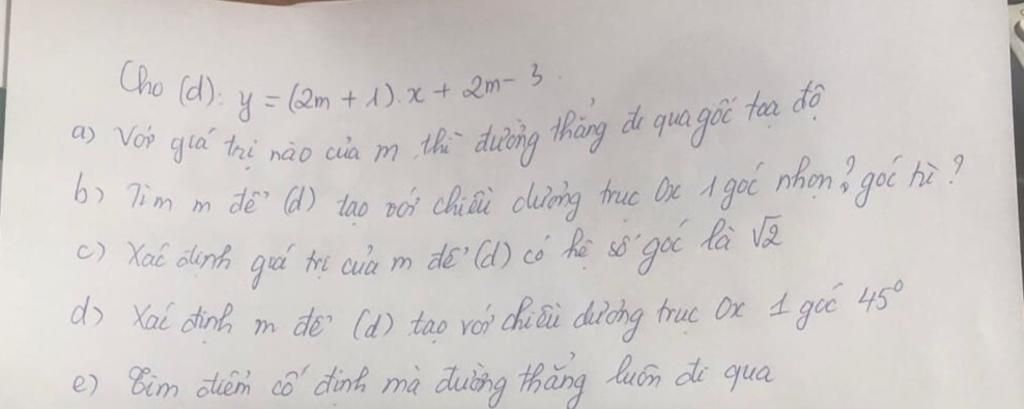 Cho (d): y = (2m + 1).x + 2m - 3.
a) Với giá trị nào của m thì đường thẳng đi qua gốc toạ độ
b) Tìm m để (d) tạo với chiều dương trục Ox 1 góc nhọn? góc tù?
c) Xác định giá trị của m để (d) có hệ số góc là √2
d) Xác định m để (d) tạo với chiều dương trục Ox 1 góc 45°
e) Tìm điểm cố định mà đường thẳng luôn đi qua